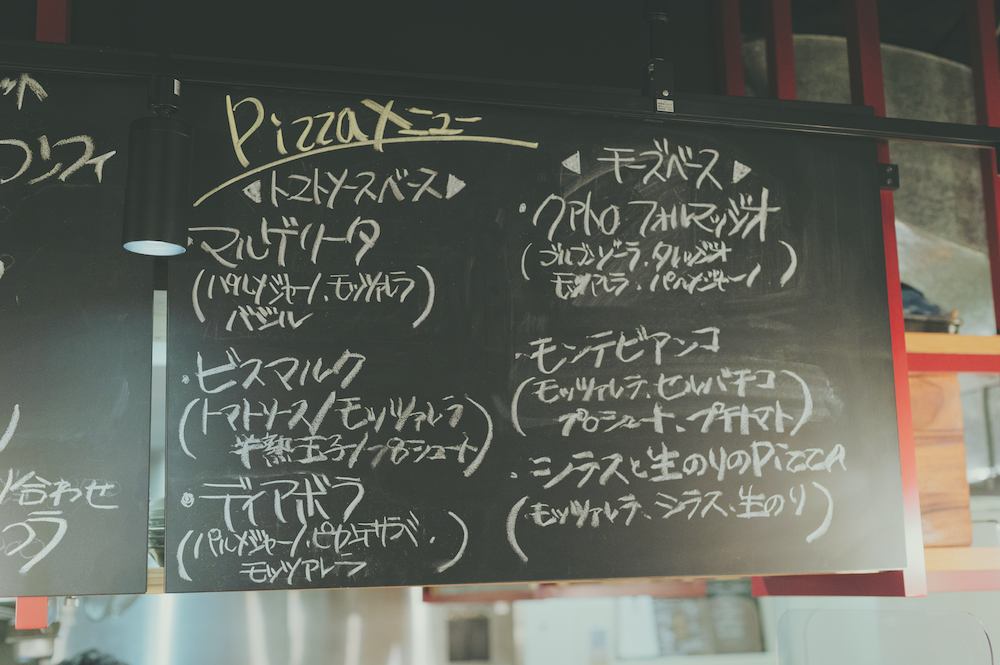 Pizzaメニュー
トマトソースベース
・マルゲリータ
(パルメジャーノ、モッツァレラ
バジル)
・ビスマルク
(トマトソース/モッツァレラ
半熟玉子/プロシュート)
・ディアボラ
(パルメジャーノ、ピカンテサラミ、
モッツァレラ)
モーズベース
・クアトロ フォルマッジオ
(ゴルゴンゾーラ、タレッジオ
モッツァレラ、パルメジャーノ)
・モンテビアンコ
(モッツァレラ、セルバチコ
プロシュート、プチトマト)
・シラスと生のりのPizzA
(モッツァレラ、シラス、生のり)
コンフィ
合わせ